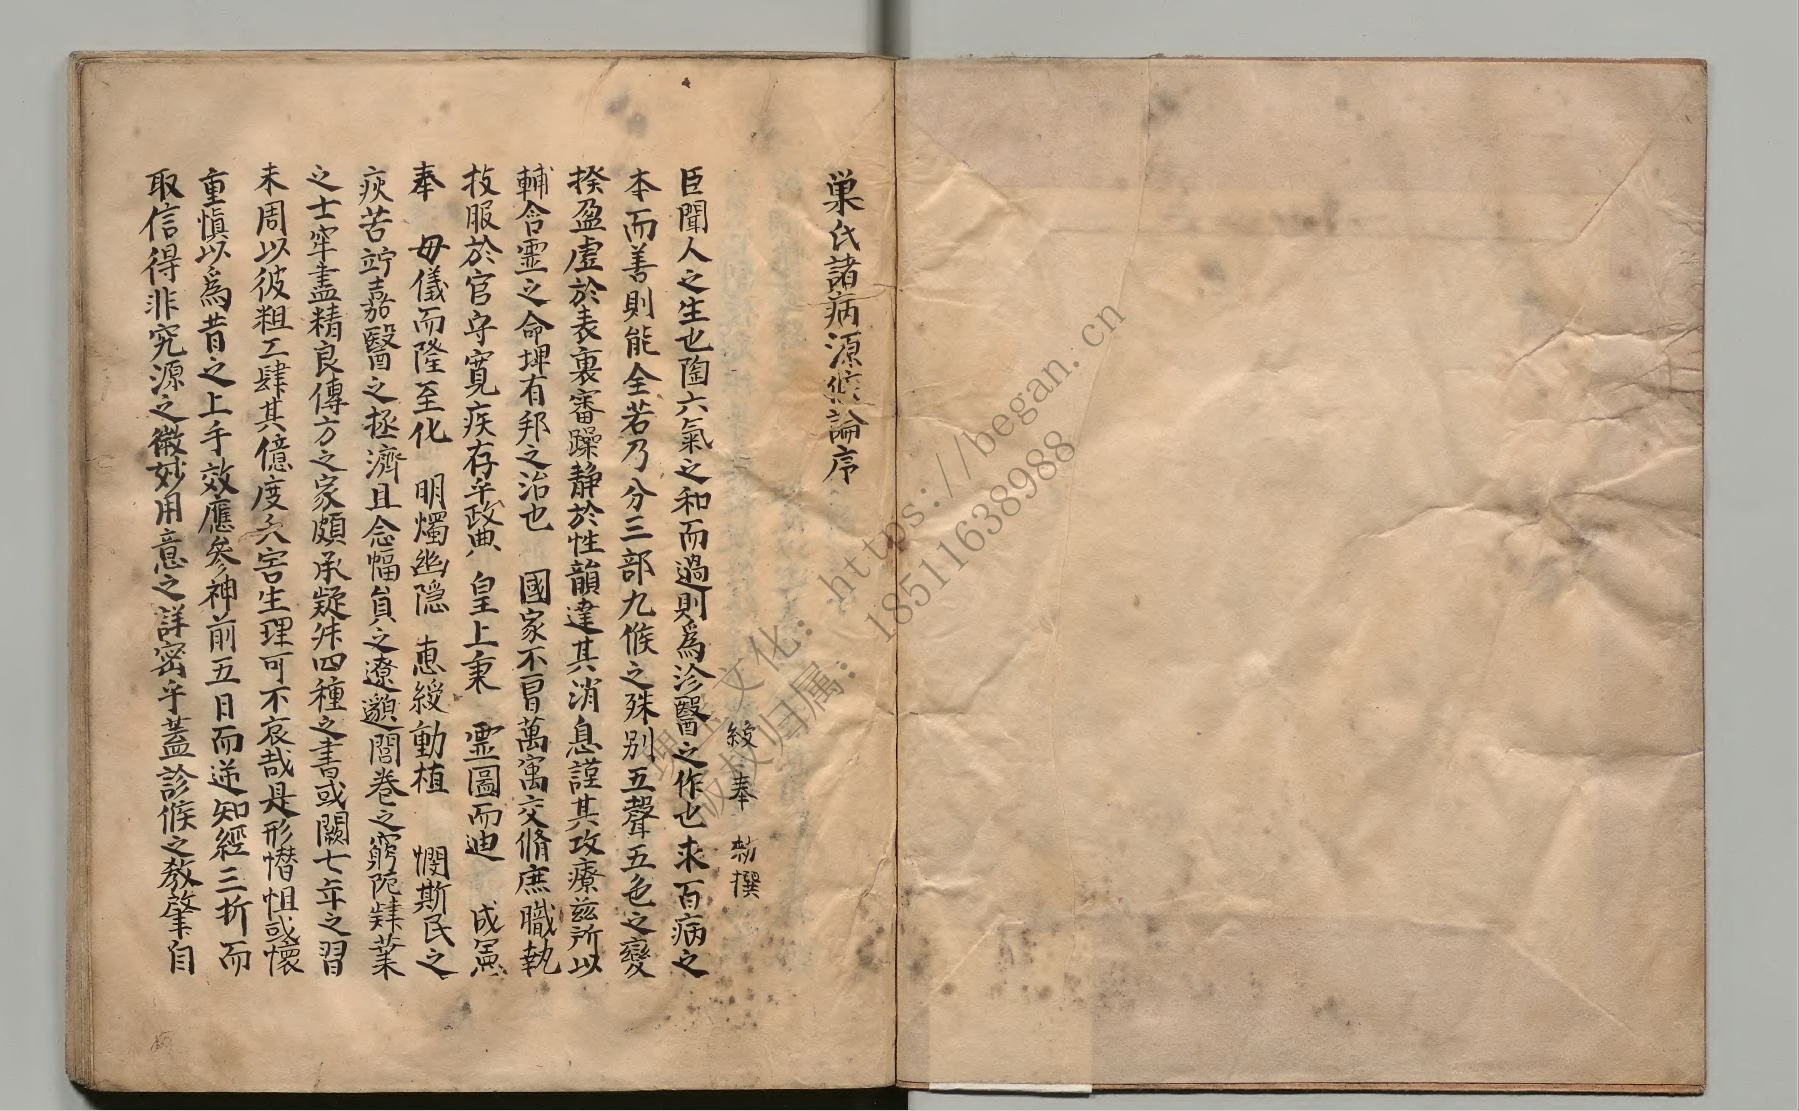 巢氏諸病源候論序
綬奉　勑撰
臣聞人之生也陶六氣之和而過則爲沴醫之作也求百病之
本而善則能全若乃分三部九候之殊别五聲五色之變
揆盈虛於表裏審躁静於性韻達其消息謹其攻療兹所以
輔含霊之命埤有邦之治也　國家不冒萬㝢交脩庶職執
技服於官守寬疾存乎政典　皇上秉　霊圖而迪　成憲
奉　毋儀而隆至化　明燭幽隠　恵綏動植　憫斯民之
疾苦竚嘉醫之拯濟且念幅員之遼邈閭巷之窮阨肄業
之士罕盡精良傳方之家頗承疑舛四種之書或闕七年之習
未周以彼粗工肆其億度夭害生理可不哀哉是形憯怛或懷
重慎以爲昔之上手效應參神前五日而逆知經三折而
取信得非究源之微妙用意之詳密乎蓋診候之教肇自
理堂文化：https://began.cn
版权归属：18511638988